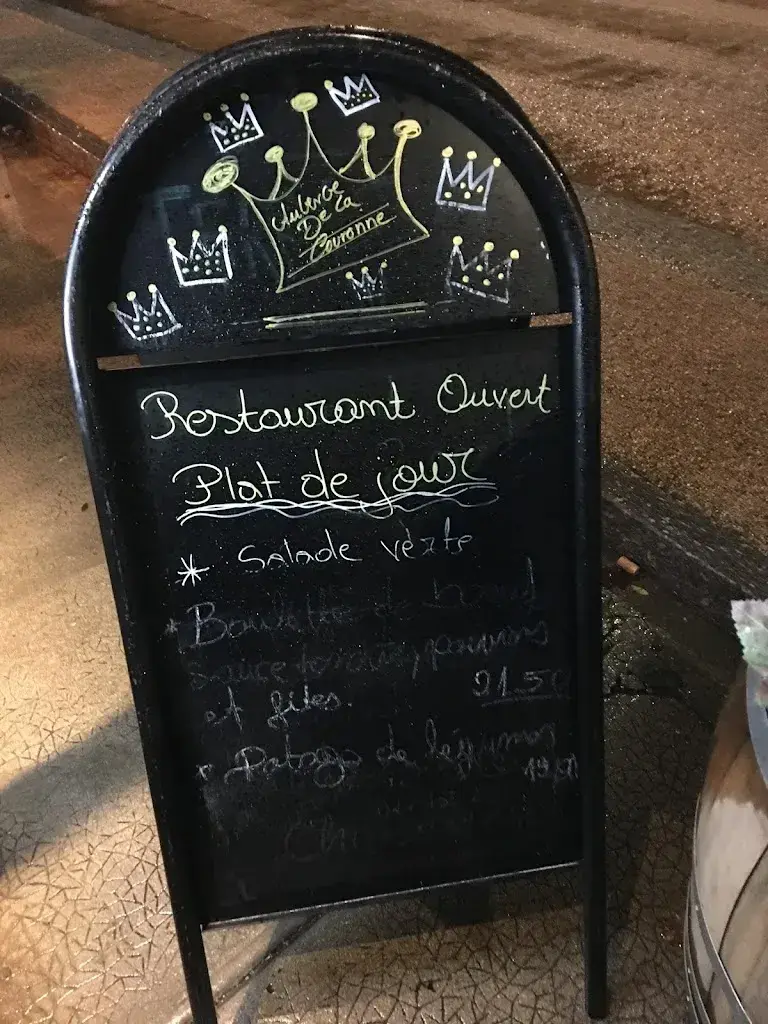 Auberge
De la
Couronne
Restaurant Ouvert
Plat de jour
* Salade verte
* Boulettes de boeuf
sauce poivrons
et fites.
21.50
* Potage de légumes
19.50